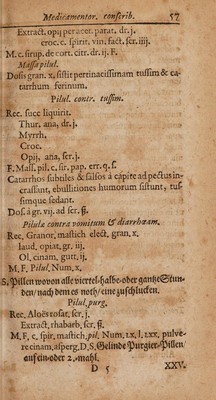 Medicamentor. conscrib. 57
Extract. opij per acet. parat. dr. j.
croc. c. spirit. vin. fact. scr. iiij.
M. c. sirup. de cort. citr. dr. ij. F.
Massa pilul.
Dosis gran. x, sistit pertinacissimam tussim & ca-
tarrhum ferinum.
Pilul. contr. tussim.
Rec. succ liquirit.
Thur. ana, dr. j.
Myrrh.
Croc.
Opij, ana, scr. j.
F. Mass, pil. c. sir. pap. err. q. s.
Catarrhos subtiles & salsos à capite ad pectus in-
crassant, ebullitiones humorum sistunt, tus-
simque sedant.
Dos. à gr. vij. ad scr. ß.
Pilulæ contra vomitum & diarrhœam.
Rec, Granor, mastich elect, gran, x.
laud, opiat, gr. iij.
Ol, cinam, gutt, ij.
M, F, Pilul, Num, x,
5. Pillen wovon alle viertel-halbe- oder gantze Stun-
den/ nach dem es noth/ eine zuschlucken.
Pilul, purg.
Rec, Aloës rosat, scr, j.
Extract, rhabarb, scr, ß.
M, F, c, spir, mastich, pil, Num. t.x, l, txx, pulve-
re cinam, asperg, D, S, Gelinde Purgier-Pillen
auf ein- oder 2. mahl.
D 5 XXV.